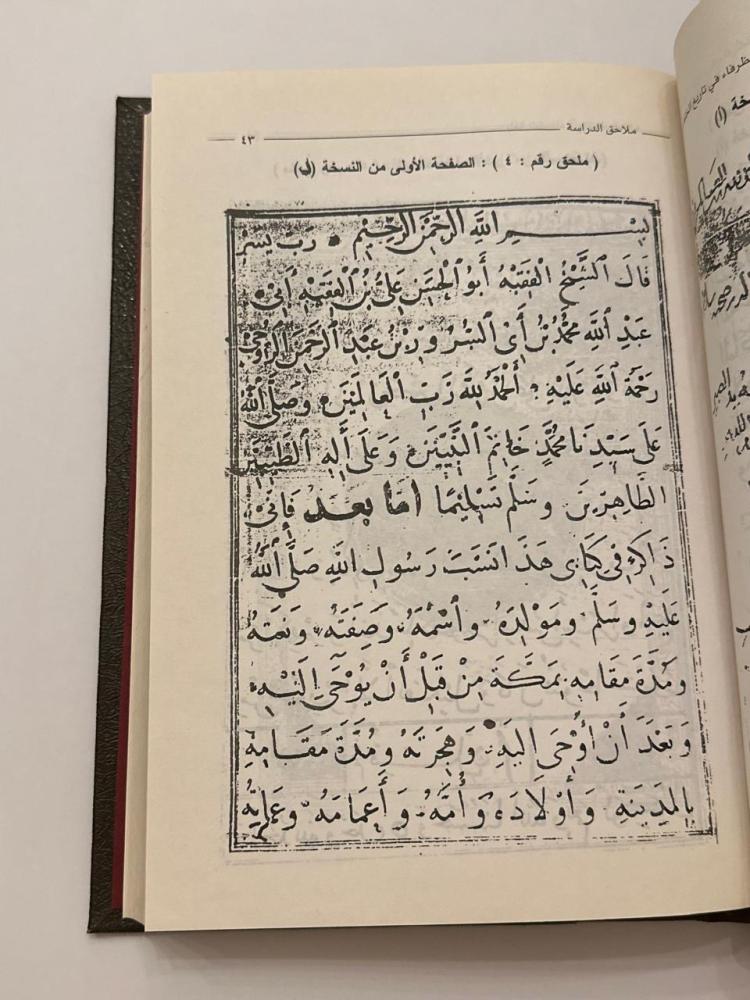 ملاحق الدراسة ٤٣
( ملحق رقم : ٤ ) : الصفحة الأولى من النسخة (ل)
بِسْــمِ اللَّهِ الرَّحْمَنِ الرَّحِيمِ . رَبِّ يَسِّرْ
قَالَ الشَّيْخُ الْفَقِيهُ أَبُو الْحَسَنِ عَلِيُّ بْنُ الْفَقِيهِ أَبِي
عَبْدِ اللَّهِ مُحَمَّدُ بْنُ أَبِي السُّرُورِ بْنِ عَبْدِ الرَّحْمَنِ الرَّوْحِيُّ
رَحْمَةُ اللَّهِ عَلَيْهِ : الْحَمْدُ لِلَّهِ رَبِّ الْعَالَمِينَ وَصَلَّى اللَّهُ
عَلَى سَيِّدِنَا مُحَمَّدٍ خَاتِمِ النَّبِيِّينَ وَعَلَى أَلِهِ الطَّيِّبِينَ
الطَّاهِرِينَ وَسَلَّمَ تَسْلِيمًا أَمَّا بَعْــد فَإِنِّي
ذَاكِرٌ فِي كِتَابِي هَذَا نَسَبَ رَسُولِ اللَّهِ صَلَّى اللَّهُ
عَلَيْهِ وَسَلَّمَ وَمَوْلِدَهُ وَاسْمَهُ وَصِفَتَهُ وَنَعْتَهُ
وَمُدَّةَ مَقَامِهِ بِمَكَّةَ مِنْ قَبْلِ أَنْ يُوحَى إِلَيْهِ
وَبَعْدَ أَنْ أُوْحَى إِلَيْهِ وَهِجْرَتَهُ وَمُدَّةَ مَقَامِهِ
بِالمَدِينَةِ وَأَوْلَادَهُ وَأُمَّهُ وَأَعْمَامَهُ